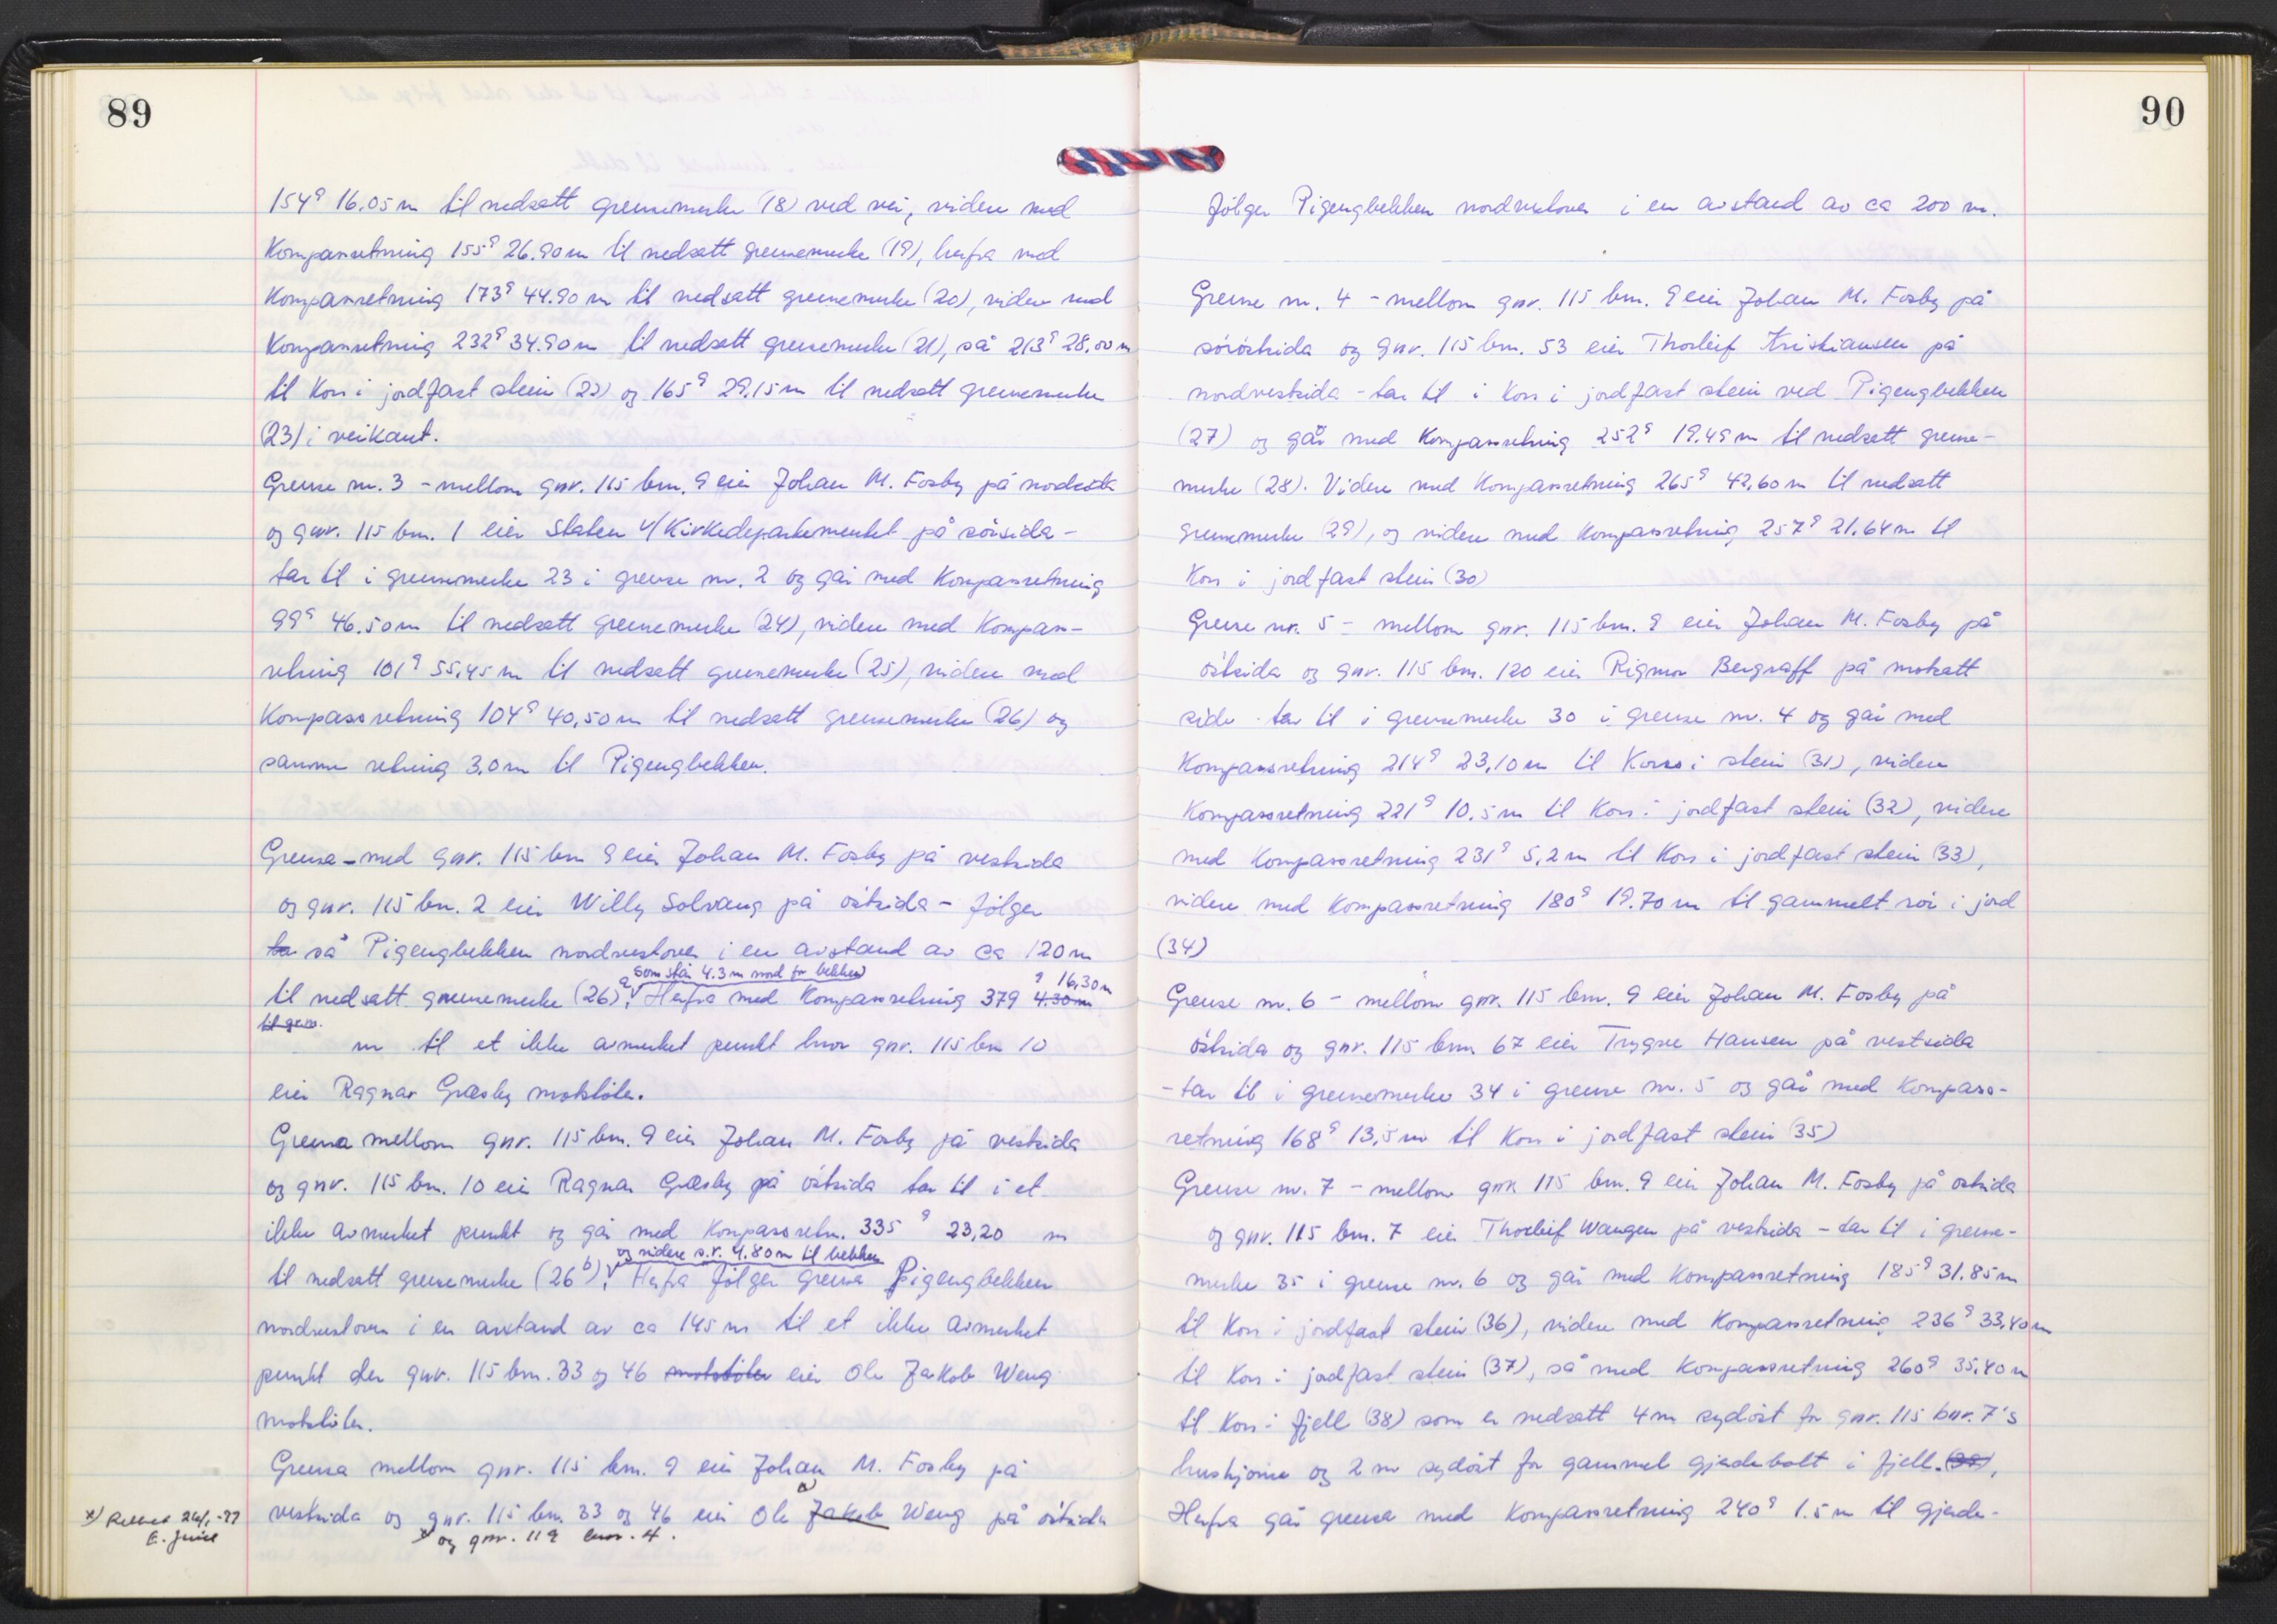 89
154g 16.05 m til nedsatt grensemerke (18) ved vei, videre med
Kompassretning 155g 26.90 m til nedsatt grensemerke (19), herfra med
Kompassretning 173g 44.90 m til nedsatt grensemerke (20), videre med
Kompassretning 232g 34.90 m til nedsatt grensemerke (21), så 213g 28,00 m
til Kors i jordfast stein (22) og 165g 29,15 m til nedsatt grensemerke
(23) i veikant.
Grense nr. 3 - mellom gnr. 115 bnr. 9 eier Johan M. Fosby på nordsida
og gnr. 115 bnr. 1 eier Staten v/Kirkedepartementet på sörsida -
tar til i grensemerke 23 i grense nr. 2 og går med Kompassretning
99g 46.50 m til nedsatt grensemerke (24), videre med Kompass-
retning 101g 55,45 m til nedsatt grensemerke (25), videre med
Kompassretning 104g 40,50 m til nedsatt grensemerke (26) og
samme retning 3,0 m til Pigengbekken.
Grensa - med gnr. 115 bnr 9 eier Johan M. Fosby på vestsida
og gnr. 115 bnr. 2 eier Willy Solvang på östsida - fölger
ta så Pigengbekken nordvestover i en avstand av ca 120 m
som står 4.3 m nord for bekken
g 16,30 m
til nedsatt grensemerke (26)a. Herfra med Kompassretning 379 4.30 m
til grm.
m til et ikke avmerket punkt hvor gnr. 115 bnr 10
eier Ragnar Græsby motstöter.
Grensa mellom gnr. 115 bnr. 9 eier Johan M. Fosby på vestsida
og gnr. 115 bnr. 10 eier Ragnar Græsby på östsida tar til i et
ikke avmerket punkt og går med Kompassretn. 335 g 23,20 m
og videre s.r. 4.80 m til bekken
til nedsatt grensemerke (26b). Herfra fölger grensa Pigengbekken
nordvestover i en avstand av ca 145 m til et ikke avmerket
punkt der gnr. 115 bnr. 33 og 46 motstöter eier Ole Jakob Weng
motstöter.
Grensa mellom gnr. 115 bnr. 9 eier Johan M. Fosby på
vestsida og gnr. 115 bnr 33 og 46 eier Ole Jakob Weng på östsida
x) og gnr. 119 bnr. 4.
x) Rettet 24/1-77
E. 
90
fölger Pigengbekken nordvestover i en avstand av ca 200 m.
Grense nr. 4 - mellom gnr. 115 bnr. 9 eier Johan M. Fosby på
söröstsida og gnr. 115 bnr. 53 eier Thorleif Kristiansen på
nordvestsida - tar til i Kors i jordfast stein ved Pigengbekken
(27) og går med Kompassretning 252g 19.49 m til nedsatt grense-
merke (28). Videre med Kompassretning 265g 42,60 m til nedsatt
grensemerke (29), og videre med Kompassretning 257g 21.64 m til
Kors i jordfast stein (30)
Grense nr. 5 - mellom gnr. 115 bnr. 9 eier Johan M. Fosby på
östsida og gnr. 115 bnr. 120 eier Rigmor Bergraff på motsatt
side - tar til i grensemerke 30 i grense nr. 4 og går med
Kompassretning 214g 23,10 m til Kors i stein (31), videre
Kompassretning 221g 10.5 m til Kors i jordfast stein (32), videre
med Kompassretning 231g 5,2 m til Kors i jordfast stein (33),
videre med Kompassretning 180g 19.70 m til gammelt rör i jord
(34)
Grense nr. 6 - mellom gnr. 115 bnr. 9 eier Johan M. Fosby på
östsida og gnr. 115 bnr. 67 eier Trygve Hansen på vestsida
- tar til i grensemerke 34 i grense nr. 5 og går med Kompass-
retning 168g 13,5 m til Kors i jordfast stein (35)
Grense nr. 7 - mellom gnr 115 bnr. 9 eier Johan M. Fosby på östsida
og gnr. 115 bnr. 7 eier Thorleif Wangen på vestsida - tar til i grense-
merke 35 i grense nr. 6 og går med Kompassretning 185g 31.85 m
til Kors i jordfast stein (36), videre med Kompassretning 236g 33,40 m
til Kors i jordfast stein (37), så med Kompassretning 260g 35,40 m
til Kors i fjell (38) som er nedsatt 4 m sydöst for gnr. 115 bnr. 7's
hushjörne og 2 m sydöst for gammel gjerdebolt i fjell. (39),
Herfra går grensa med Kompassretning 240g 1.5 m til gjerde-